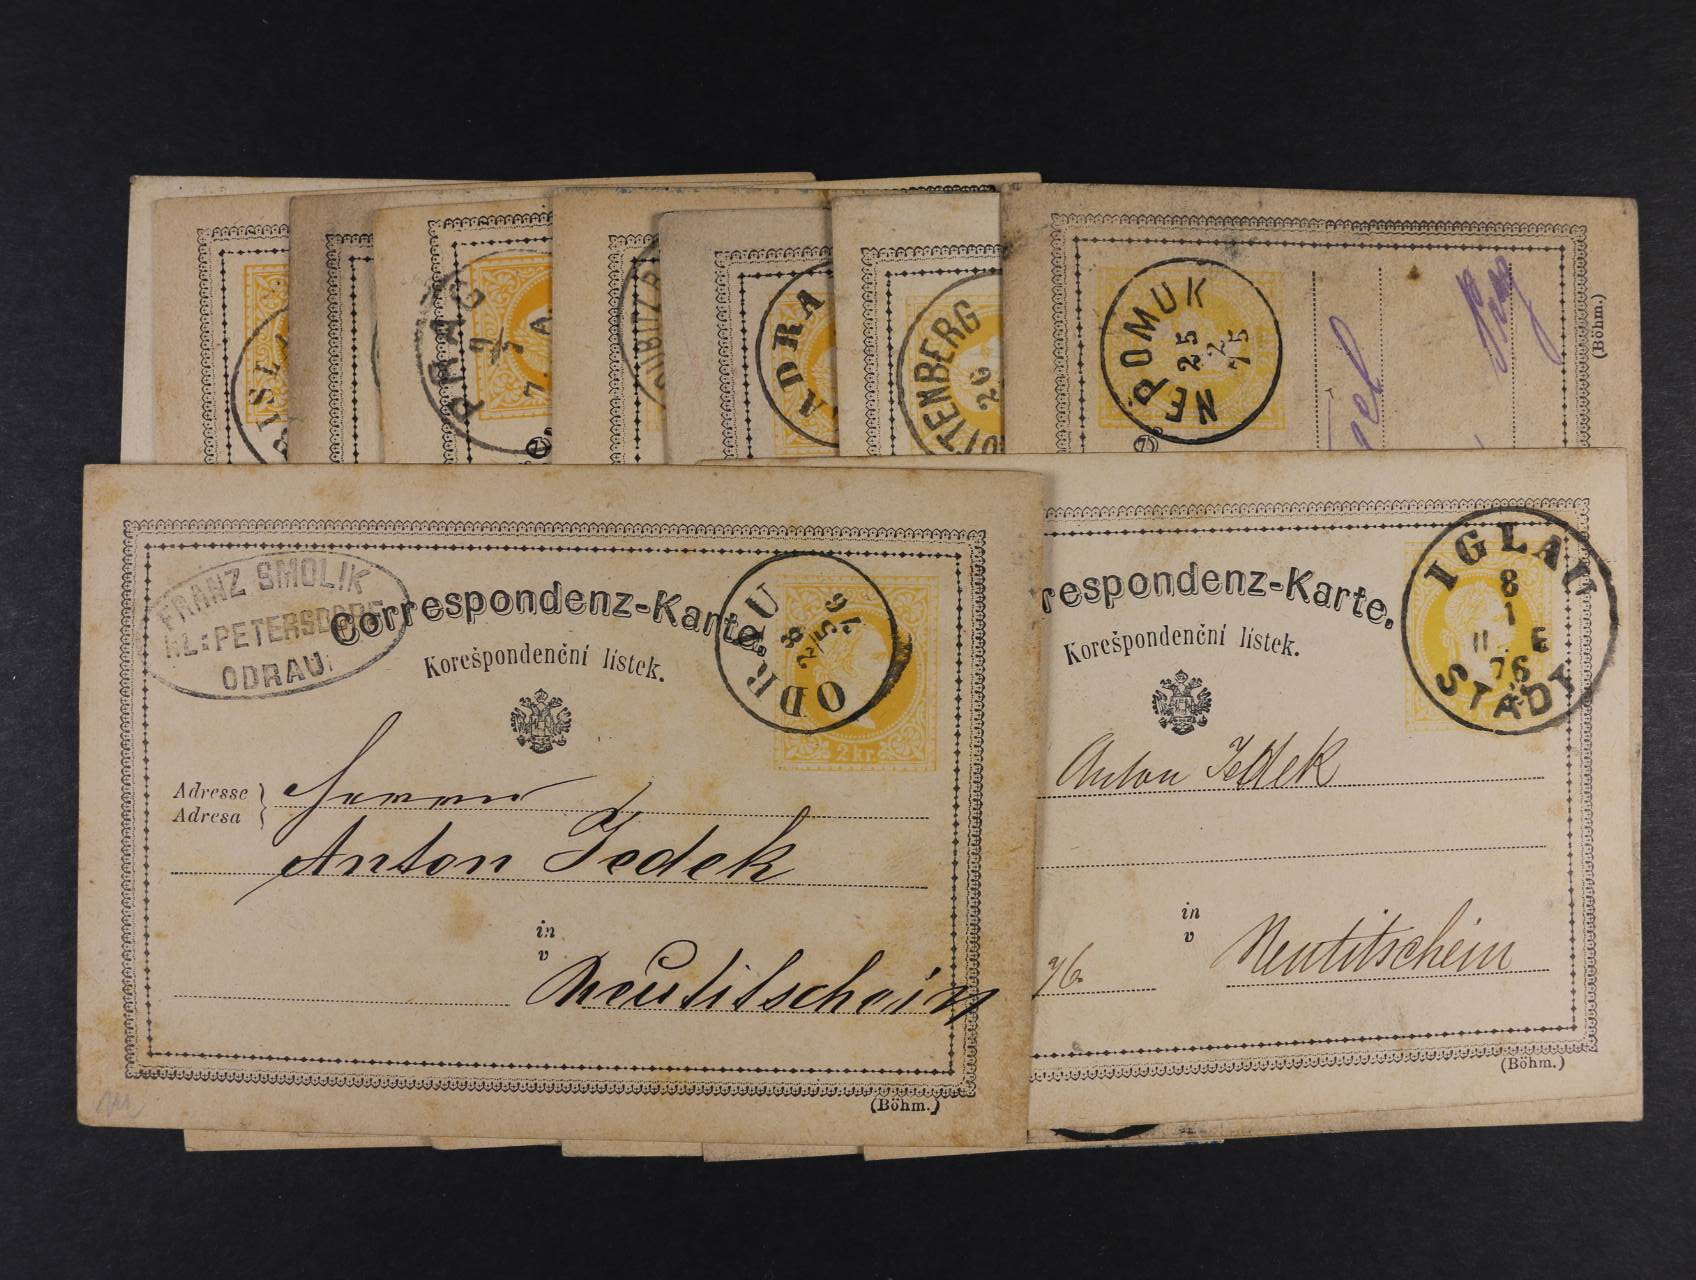 PRAG
9/7
7. A.
ADRA
TTENBERG
26
NEPOMUK
25
2
75
(Böhm.)
FRANZ SMOLIK
KL: PETERSDORF
ODRAU
Correspondenz-Karte.
Korešpondenční lístek.
ODRAU
2 kr.
Adresse
Adresa
Herrn
Anton Jedek
in
v
Neutitschein
(Böhm.)
respondenz-Karte.
Korešpondenční lístek.
IGLAU
8
1
11 E
76
STADT
Anton Jedek
in
v
76
Neutitschein
(Böhm.)